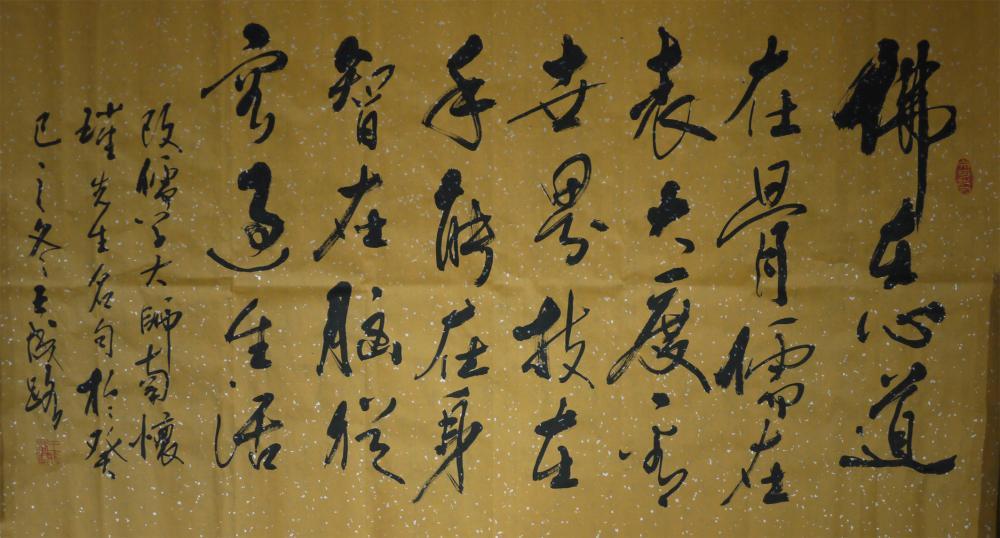 佛在心道
在骨儒在
表大度看
世界技在
手能在身
智在脑從
容過生活
改儒学大师南懷
瑾先生名句於癸
巳之冬王成路